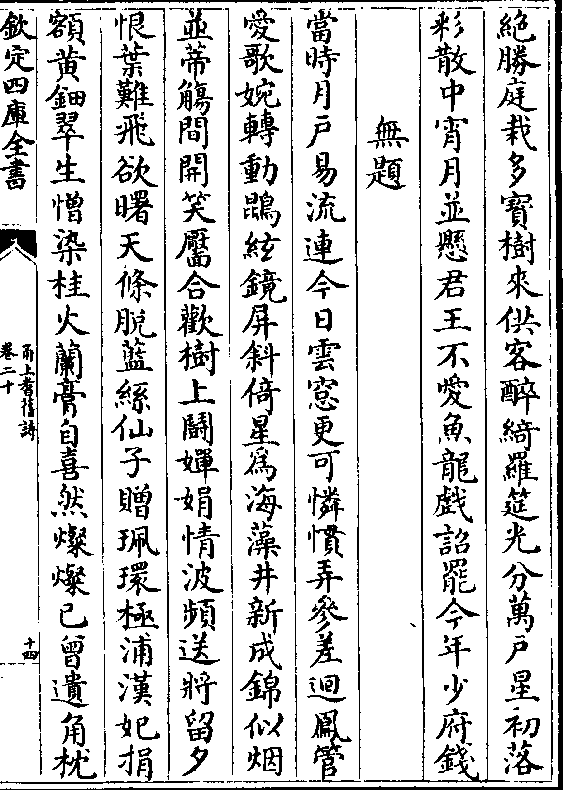 絶勝庭栽多寳樹來供客醉綺羅筵光分萬戸星初落
彩散中宵月並懸君王不愛魚龍戲詔罷今年少府錢
無題
當時月戸易流連今日雲窓更可憐慣弄參差迴鳳管
愛歌婉轉動鵾絃鏡屏斜倚星為海藻井新成錦似烟
並蒂觴間開笑靨合歡樹上鬭嬋娟情波頻送將留夕
恨葉難飛欲曙天條脱藍絲仙子贈珮環極浦漢妃捐
額黄鈿翠生憎染桂火蘭膏自喜然燦燦已曾遺角枕
欽定四庫全書
甬上耆舊詩
卷二十
十四